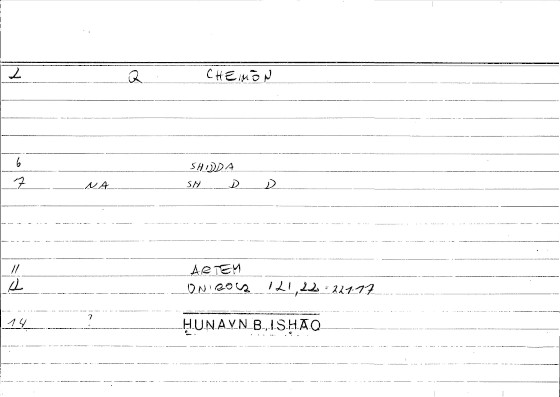 1 Q CHEIMŌN
6 SHIDDA
7 NA SH D D
11 ARTEM
12 ONIROCR 121,22
14 ? ḤUNAYN B. ISḤĀQ